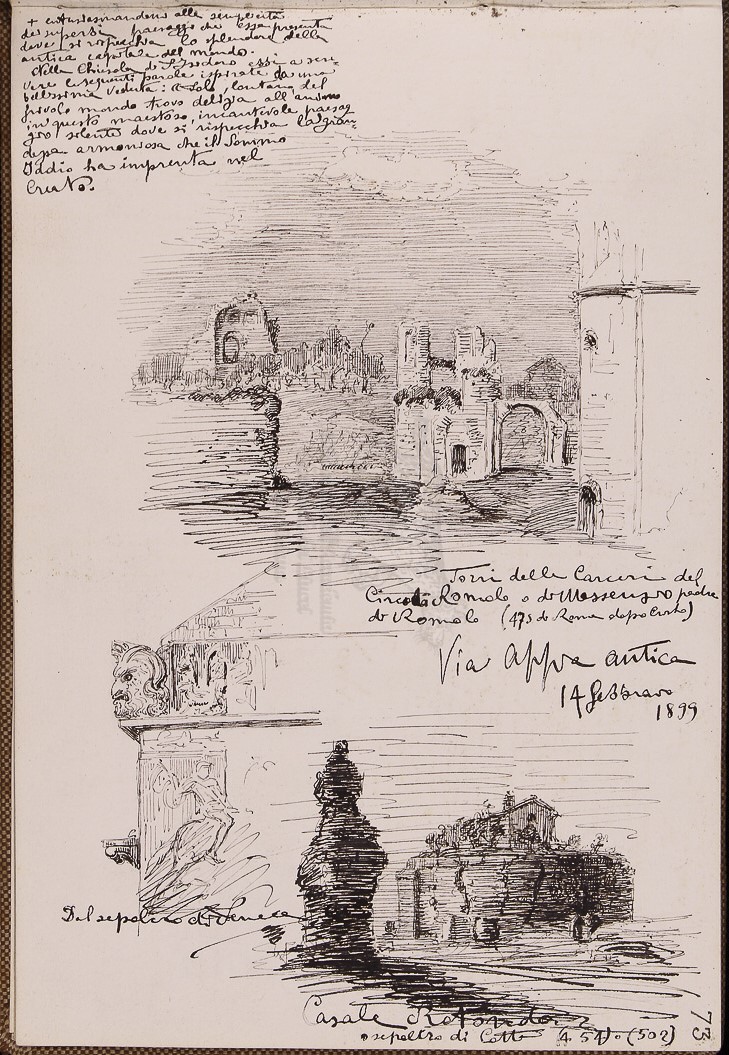 + alla semplicità
dei superbi paesaggi che essa presenta
dove si rispecchia lo splendore della
antica capitale del mondo.
Nella Chiesola di S. Isodoro essi a scri-
vere le seguenti parole ispirate da una
bellissima veduta: Solo, lontano del
frivolo mondo trovo delizia all'animo
in questo maestoso, incantevole paesag
gio silente dove si rispecchia la gran-
dezza armoniosa che il Sommo
Iddio ha imprenta nel
Creato.
Torri delle Carceri del
Circo di Romolo o di Massenzio padre
di Romolo (475 di Roma dopo Cristo)
Via Appia antica
14 febbraio
1899
Dal sepolcro di Seneca
Casale Rotondo
o sepolcro di Cotta (4 54). (502)
73